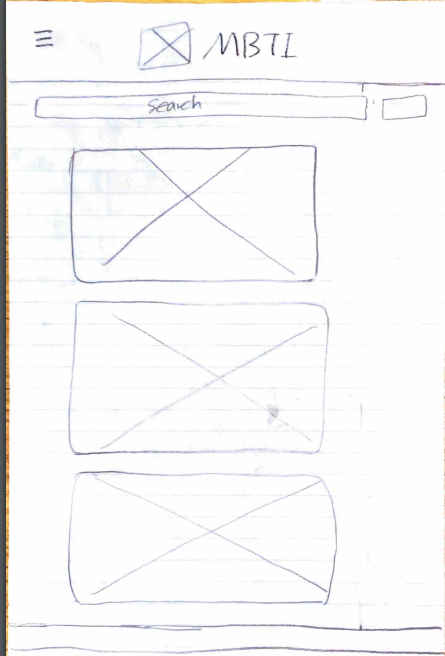 MBTI
Search